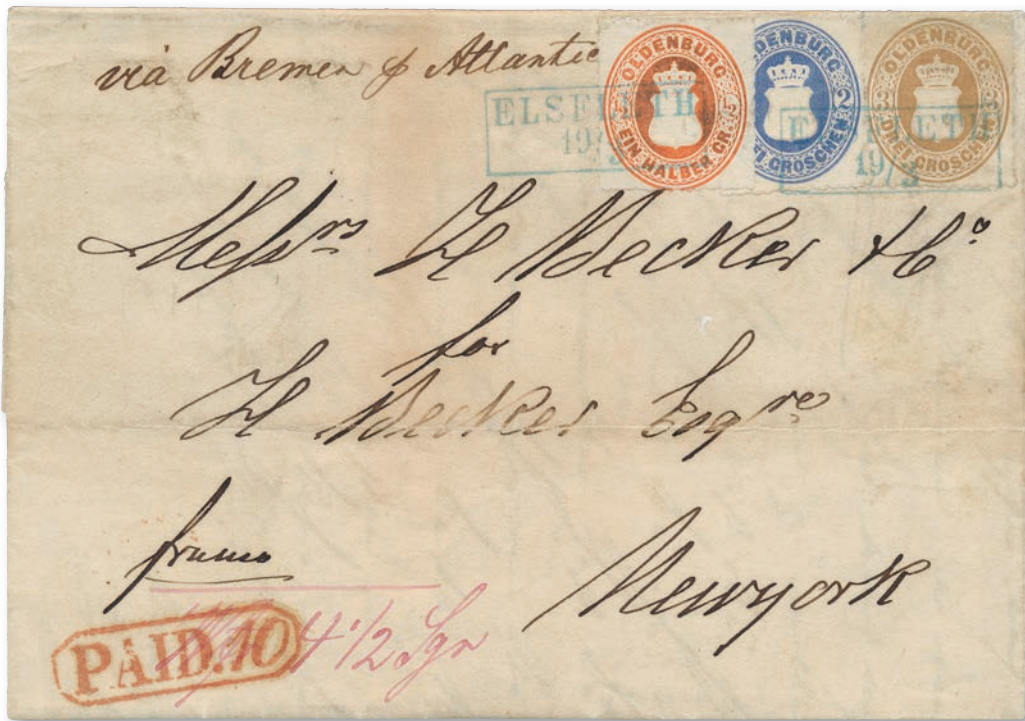 via Bremen p Atlantic
OLDENBURG
EIN HALBER GR.
OLDENBURG
2
GROSCHEN
OLDENBURG
3
DREI GROSCHEN
ELSFLETH
19/3
ELSFLETH
19/3
Messrs H Becker & Co
for
H Becker Esqre
franco
Newyork
PAID.10
4 1/2 Sgr